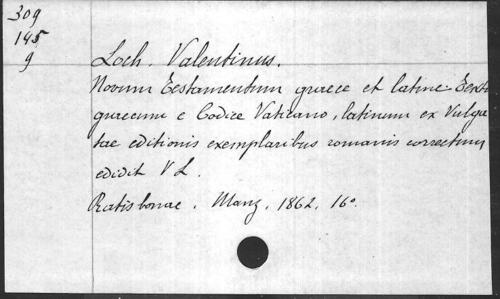 309
145
9
Loch. Valentinus.
Novum Testamentum graece et latine. Textu
graecum e Codice Vaticano, latinum ex Vulga
tae editionis exemplaribus romanis correctum
edidit V L.
Ratisbonae. Manz. 1862. 16º.